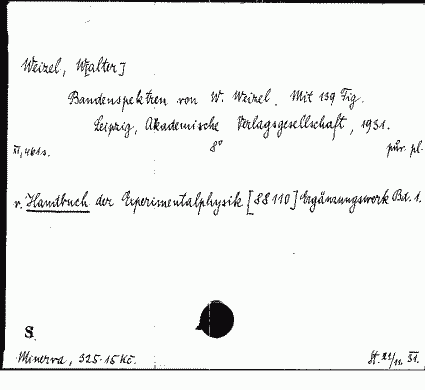 Weizel, W[alter]
Bandenspektren von W. Weizel. Mit 139 Fig.
Leipzig, Akademische Verlagsgesellschaft, 1931.
XI, 461 s. 8° pův. pl.
v. Handbuch der Experimentalphysik [SS 110] Ergänzungswerk Bd. 1.
S.
Minerva, 325·15 Kč. St. 21/11. 31.